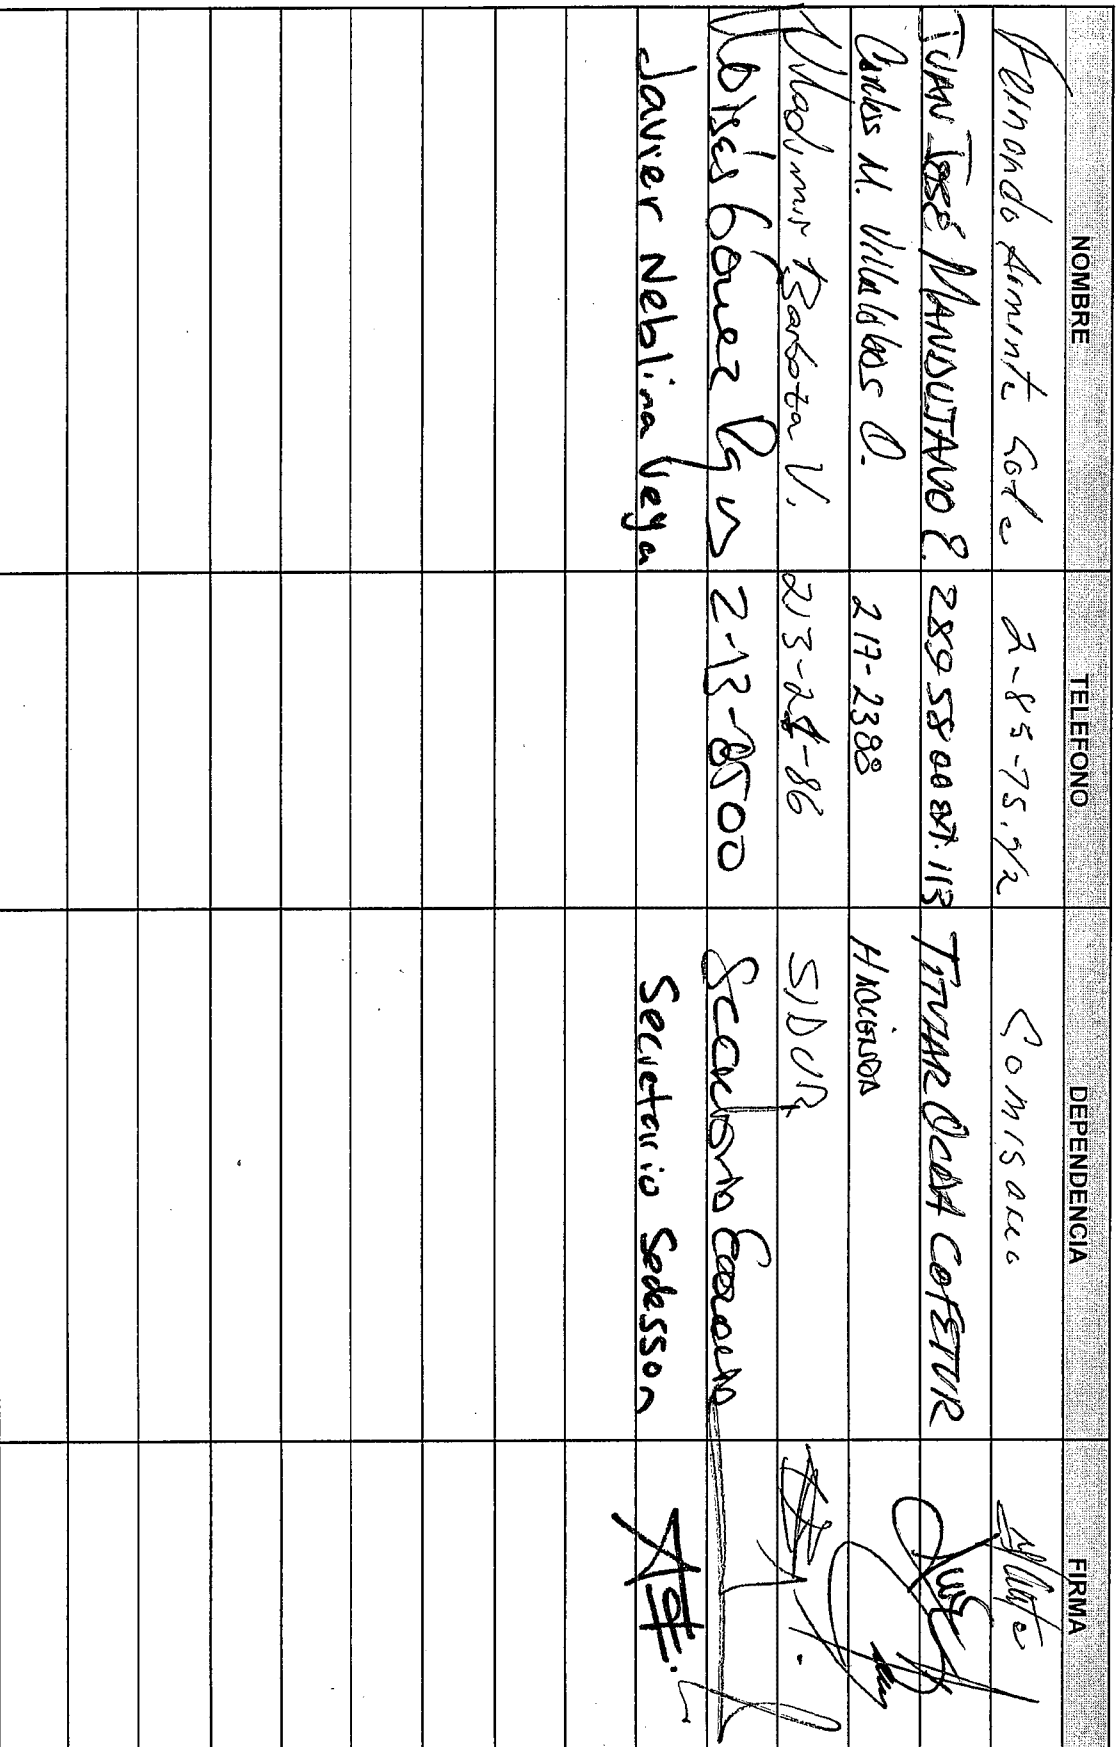 NOMBRE TELEFONO DEPENDENCIA FIRMA
Fernando 2-85-75. Comisario
JUAN JOSÉ MANDUJANO E. 289 58 00 EXT. 113 TITULAR COFETUR
Carlos M. Villalobos O. 217-2388 HACIENDA
Wladimir Barboza V. 213-24-86 SIDUR
Moisés Gómez 2-13-8500 Secretario Economía
Javier Neblina Vega Secretario Sedesson